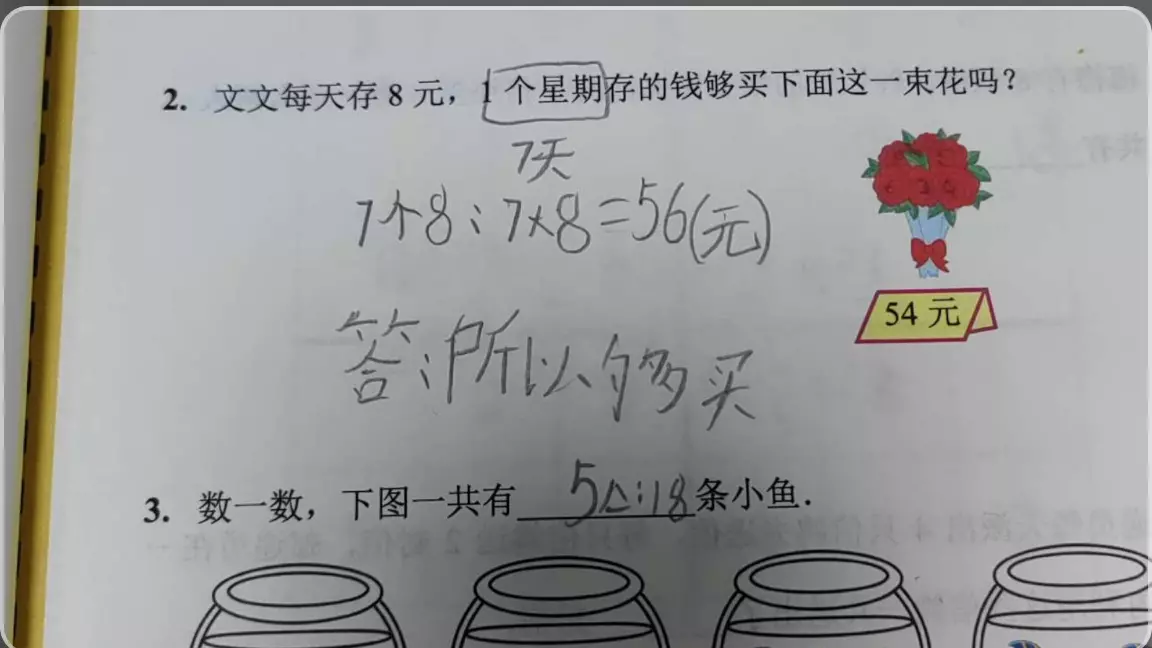 2. 文文每天存 8 元，1 个星期存的钱够买下面这一束花吗？
7天
7个8：7×8=56(元)
54 元
答：所以够买
3. 数一数，下图一共有 5个：18 条小鱼．